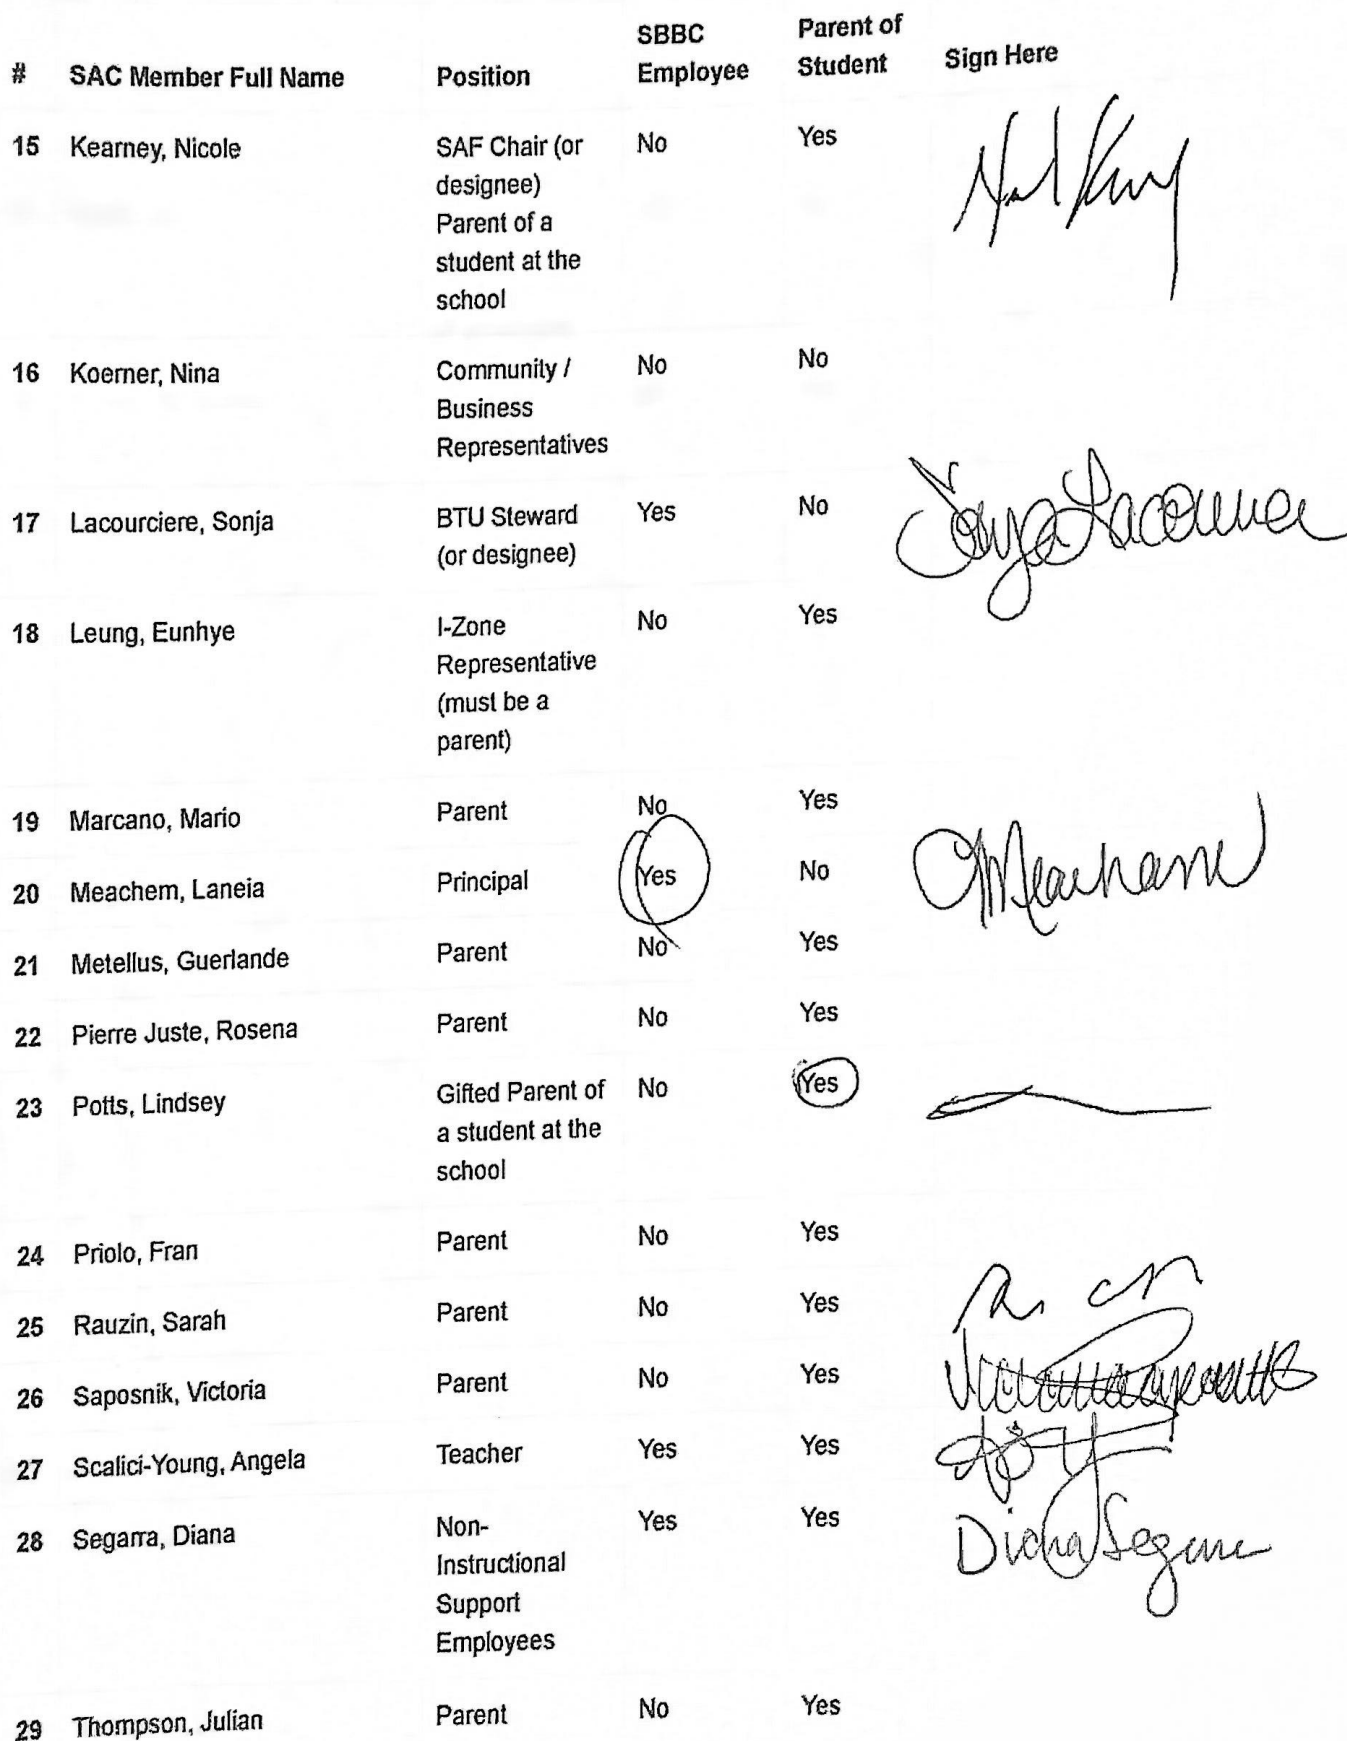 # SAC Member Full Name Position SBBC Employee Parent of Student Sign Here
15 Kearney, Nicole SAF Chair (or No Yes
designee)
Parent of a
student at the
school
16 Koerner, Nina Community / No No
Business
Representatives
17 Lacourciere, Sonja BTU Steward Yes No
(or designee)
18 Leung, Eunhye I-Zone No Yes
Representative
(must be a
parent)
19 Marcano, Mario Parent No Yes
20 Meachem, Laneia Principal Yes No
21 Metellus, Guerlande Parent No Yes
22 Pierre Juste, Rosena Parent No Yes
23 Potts, Lindsey Gifted Parent of No Yes
a student at the
school
24 Priolo, Fran Parent No Yes
25 Rauzin, Sarah Parent No Yes
26 Saposnik, Victoria Parent No Yes
27 Scalici-Young, Angela Teacher Yes Yes
28 Segarra, Diana Non- Yes Yes Diana Segarra
Instructional
Support
Employees
29 Thompson, Julian Parent No Yes